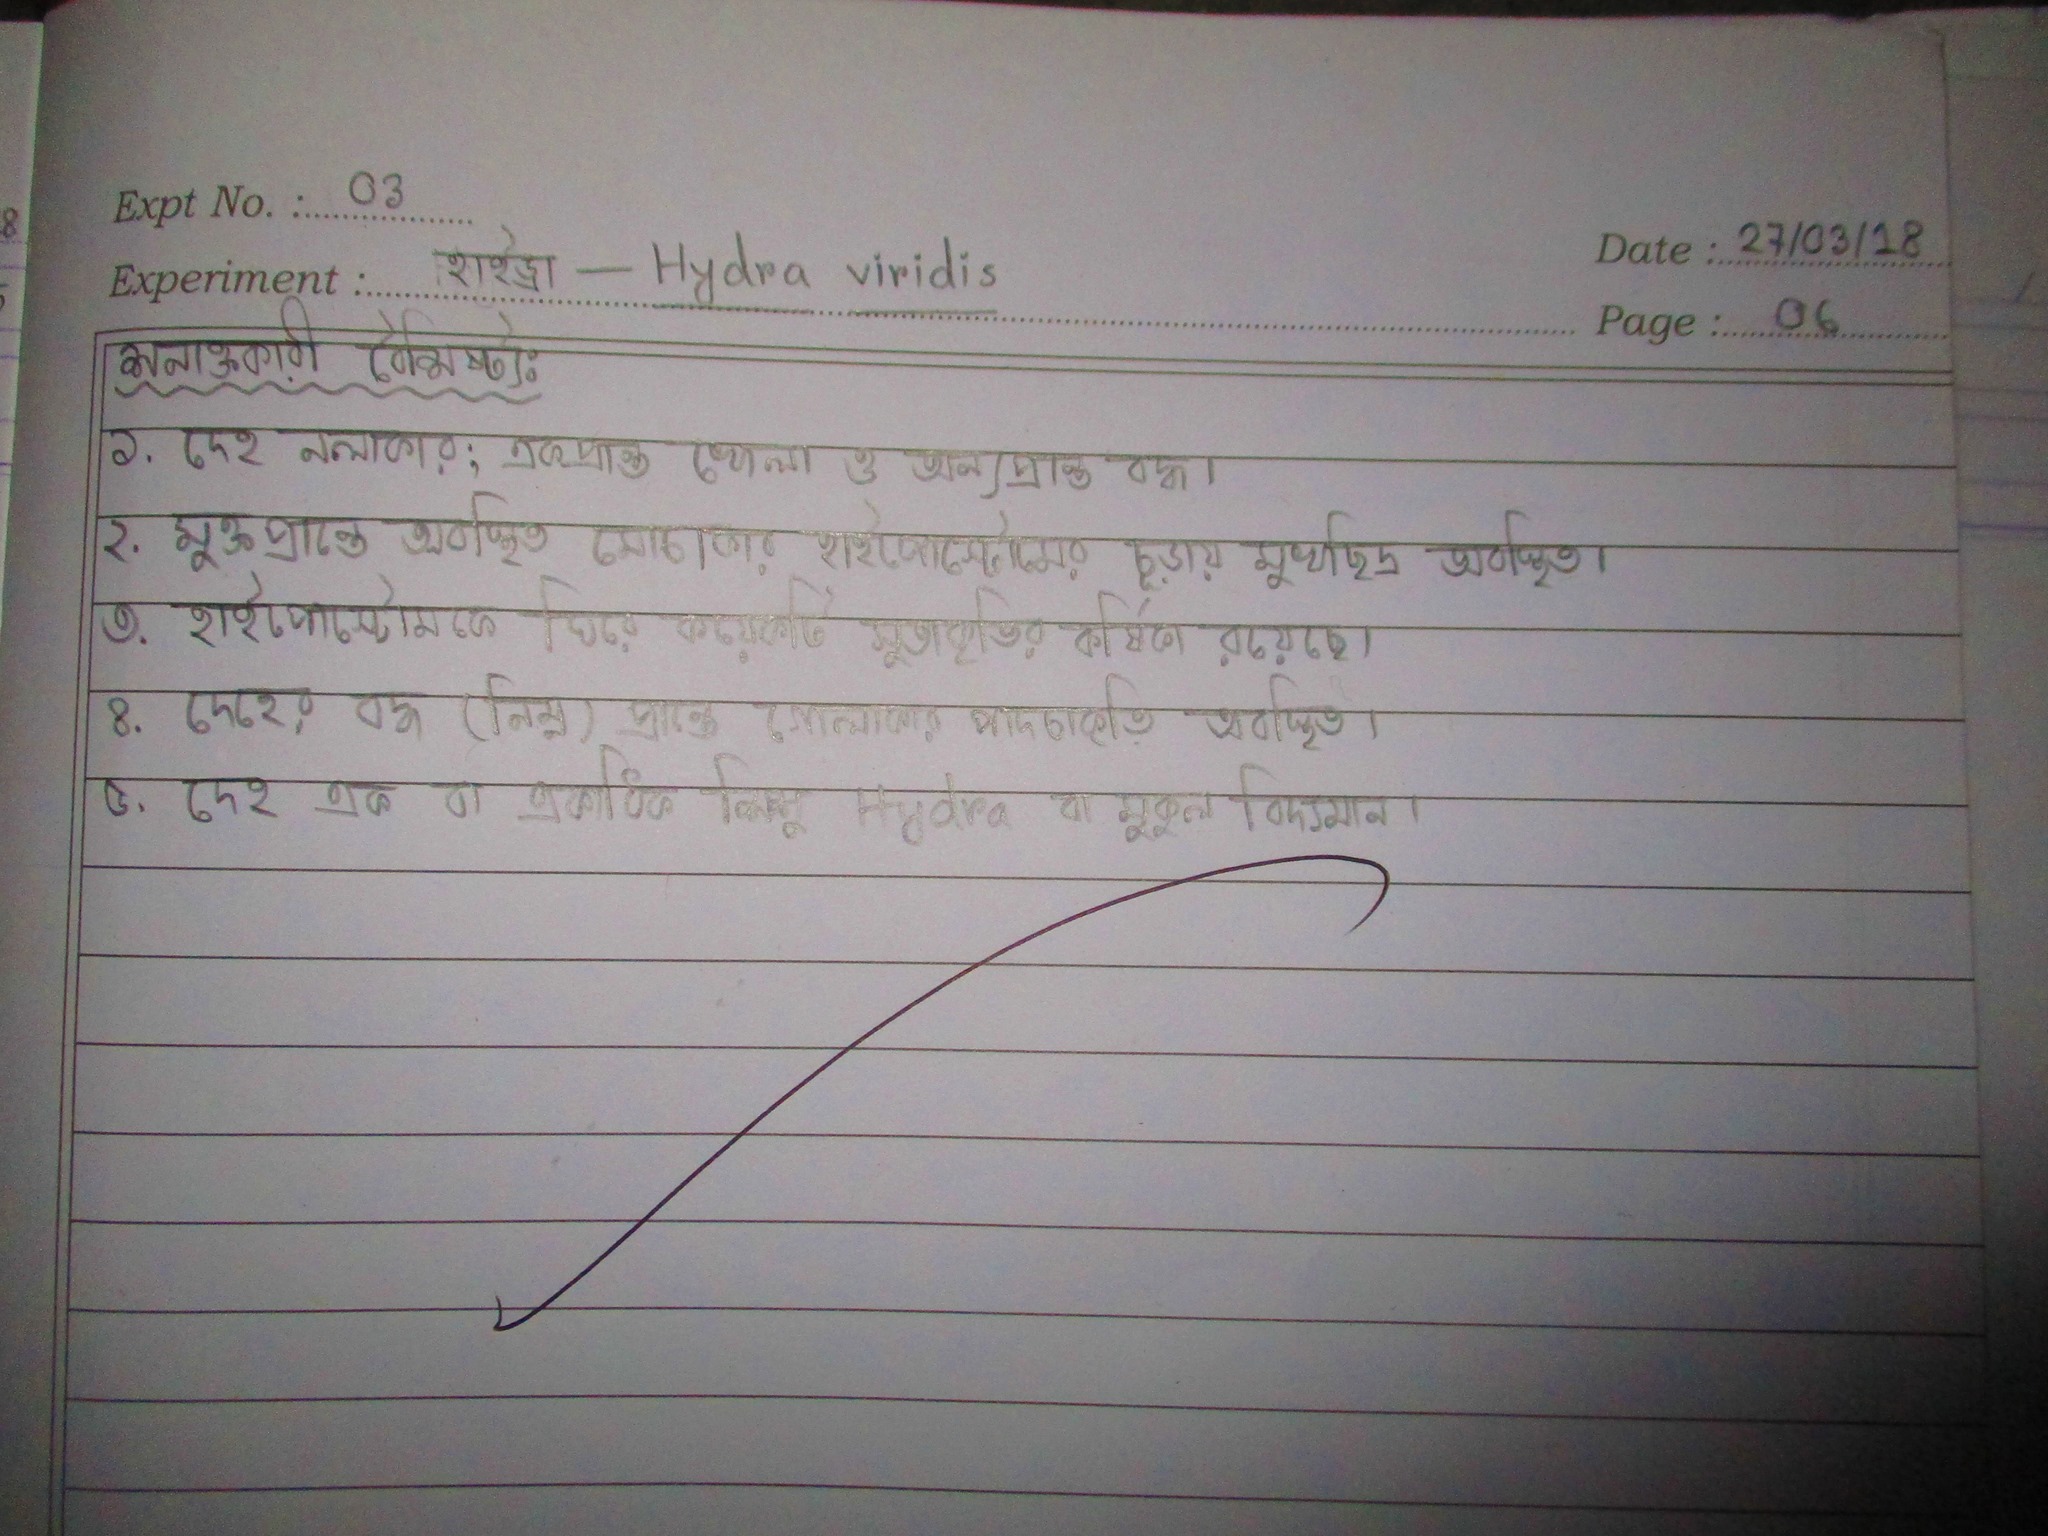 Expt No. : 03
Experiment : হাইড্রা — Hydra viridis
Date : 27/03/18
Page : 06
শনাক্তকারী বৈশিষ্ট্যঃ
১. দেহ নলাকার; একপ্রান্ত খোলা ও অন্যপ্রান্ত বদ্ধ।
২. মুক্তপ্রান্তে অবস্থিত মোচাকার হাইপোস্টোমের চূড়ায় মুখছিদ্র অবস্থিত।
৩. হাইপোস্টোমকে ঘিরে কয়েকটি সুতাকৃতির কর্ষিকা রয়েছে।
৪. দেহের বদ্ধ (নিম্ন) প্রান্তে গোলাকার পাদচাকতি অবস্থিত।
৫. দেহ এক বা একাধিক শিশু Hydra বা মুকুল বিদ্যমান।